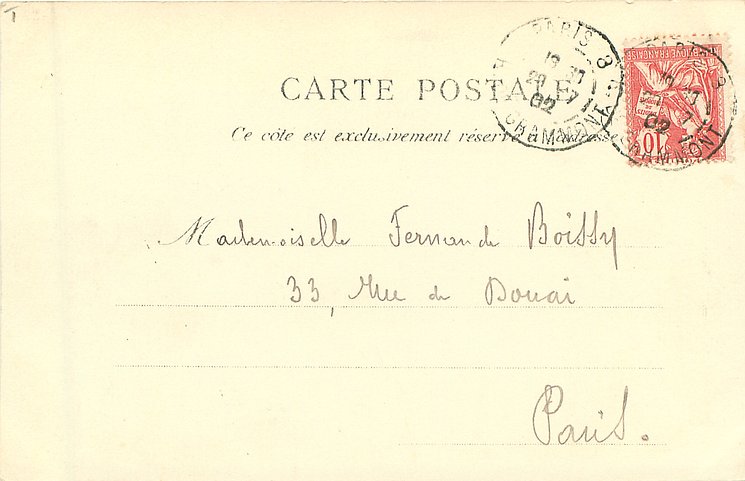 CARTE POSTALE
Ce côté est exclusivement réservé à l'adresse
PARIS 8
29 7
02
GRAMMONT
RÉPUBLIQUE FRANÇAISE
10
PARIS 8
7
02
GRAMMONT
Mademoiselle Fernande Boissy
33, Rue de Douai
Paris.